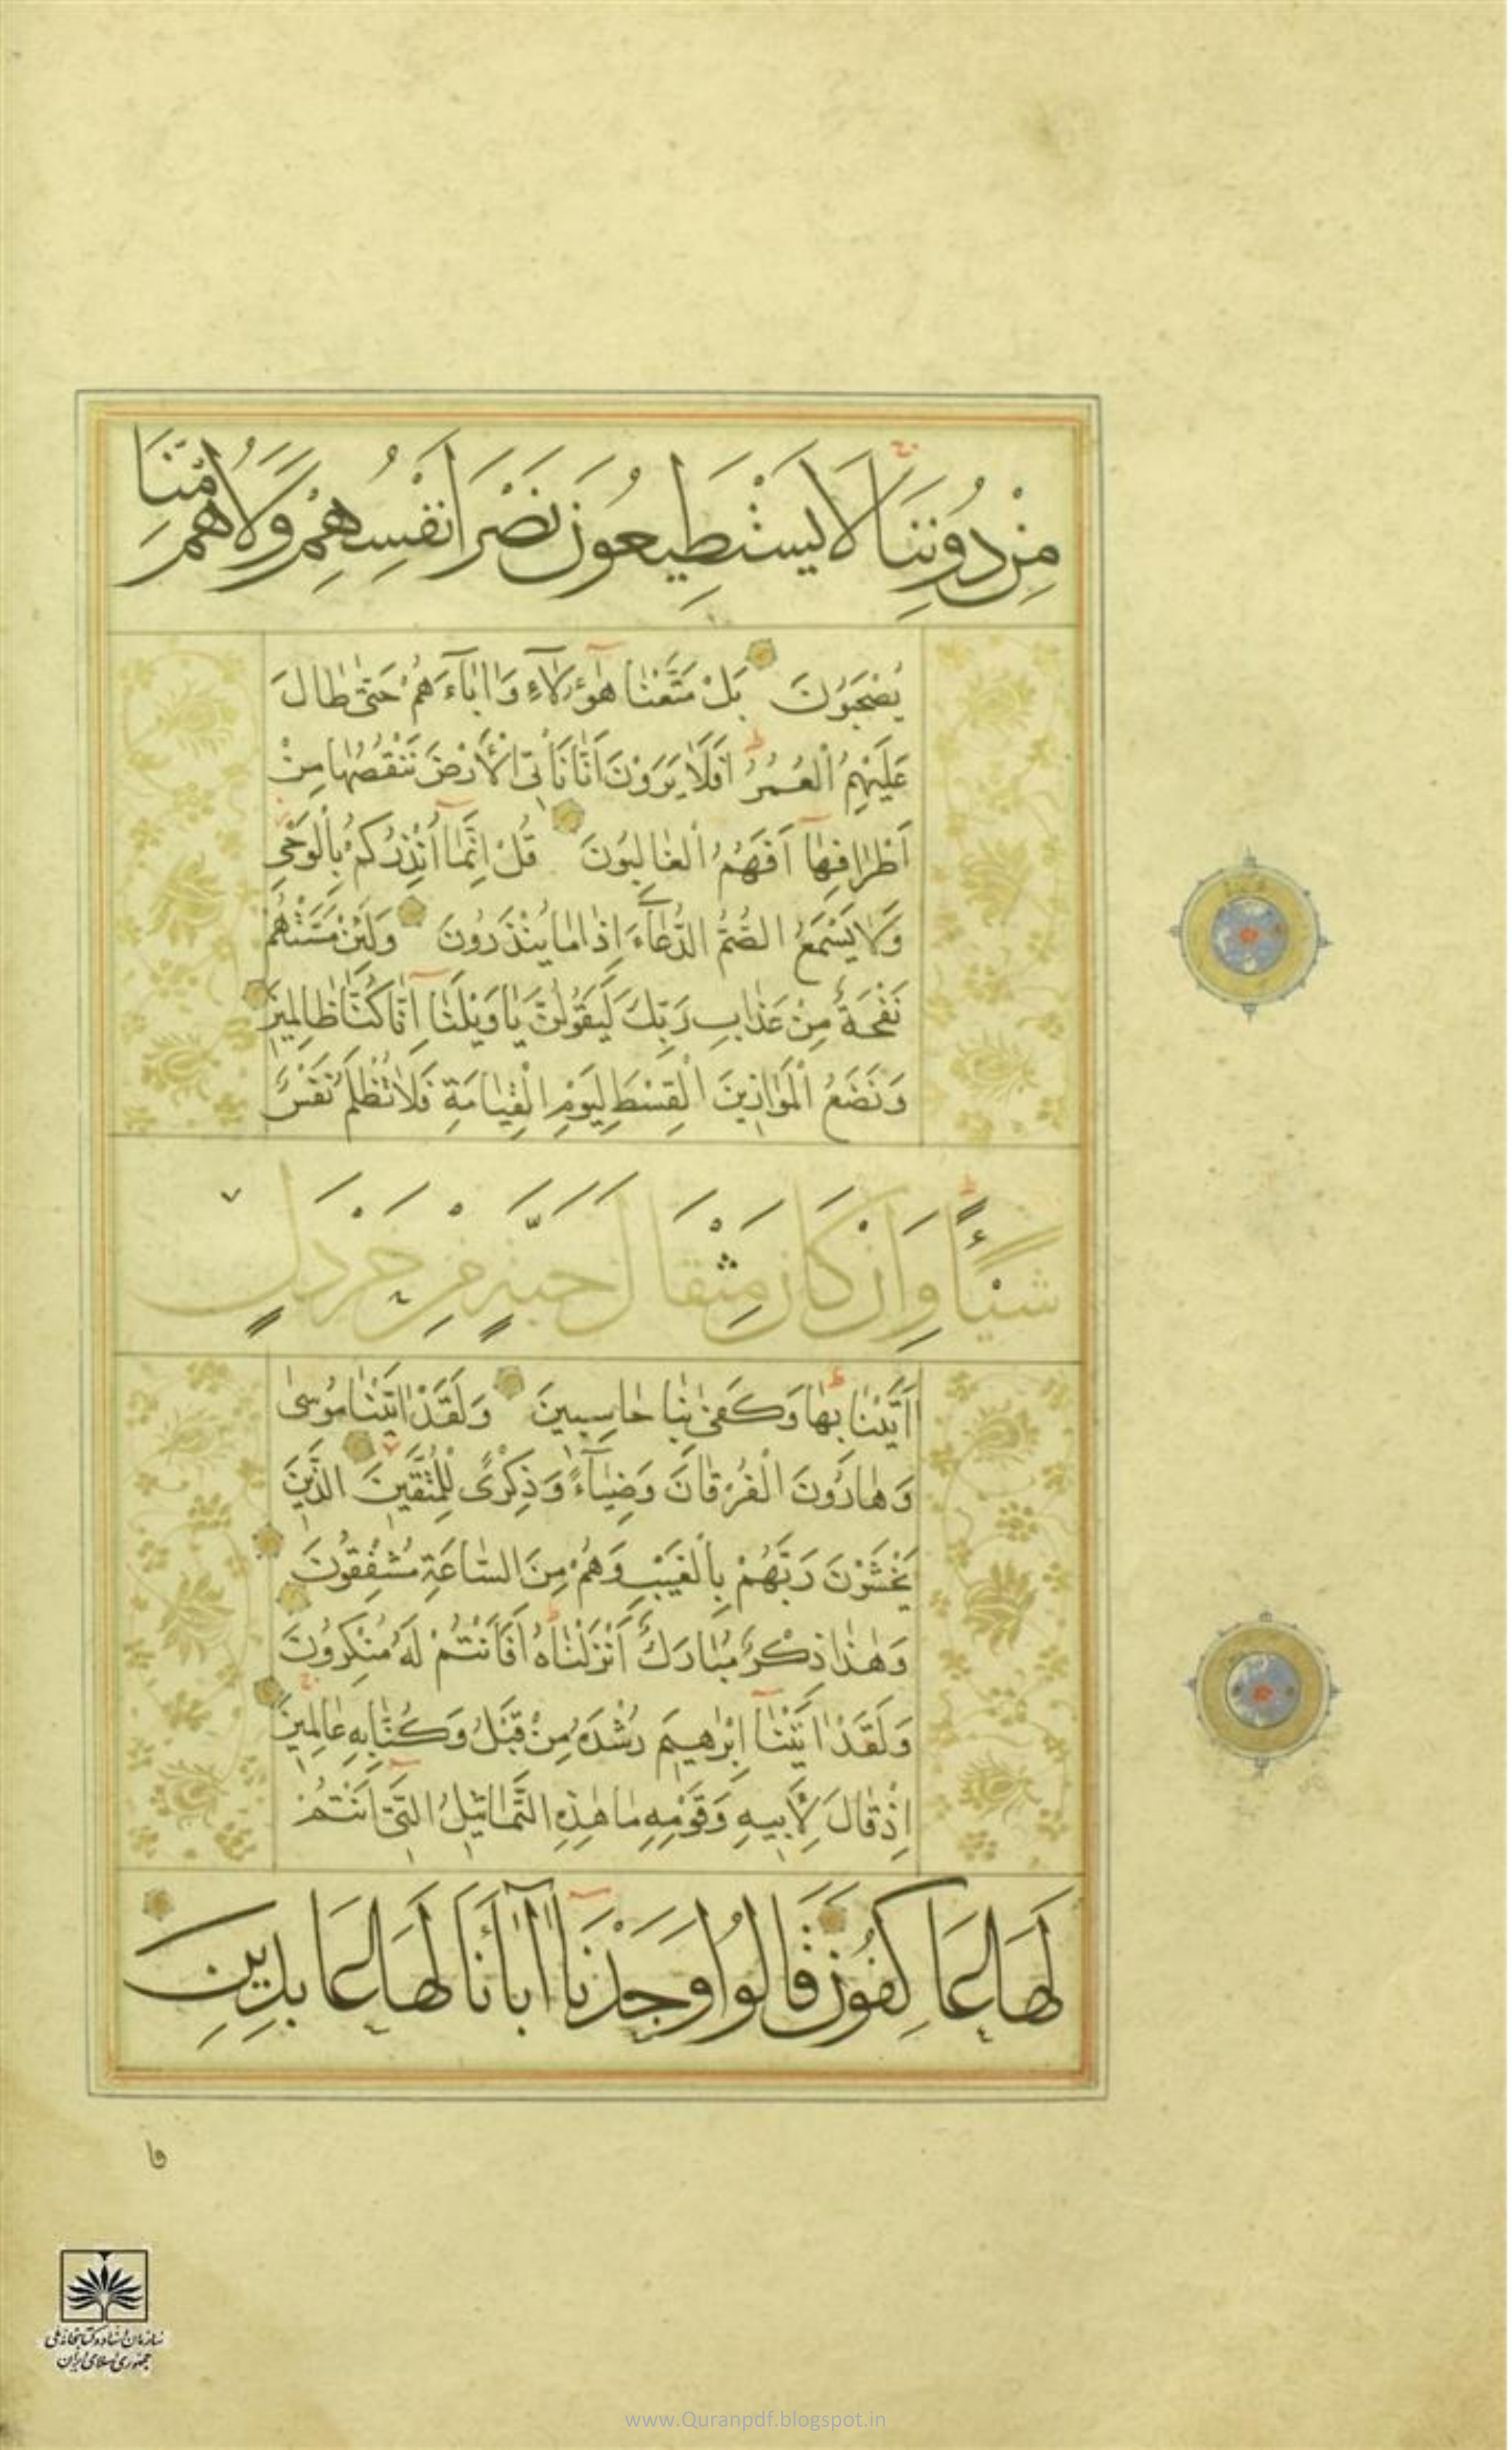 مِنْ دُونِنَا لَا يَسْتَطِيعُونَ نَصْرَ أَنْفُسِهِمْ وَلَا هُمْ مِنَّا
يُصْحَبُونَ بَلْ مَتَّعْنَا هٰؤُلَآءِ وَاٰبَآءَهُمْ حَتّٰى طَالَ
عَلَيْهِمُ الْعُمُرُ اَفَلَا يَرَوْنَ اَنَّا نَأْتِى الْاَرْضَ نَنْقُصُهَا مِنْ
اَطْرَافِهَا اَفَهُمُ الْغَالِبُونَ قُلْ اِنَّمَا اُنْذِرُكُمْ بِالْوَحْىِ
وَلَا يَسْمَعُ الصُّمُّ الدُّعَآءَ اِذَا مَا يُنْذَرُونَ وَلَئِنْ مَسَّتْهُمْ
نَفْحَةٌ مِنْ عَذَابِ رَبِّكَ لَيَقُولُنَّ يَا وَيْلَنَا اِنَّا كُنَّا ظَالِمِينَ
وَنَضَعُ الْمَوَازِينَ الْقِسْطَ لِيَوْمِ الْقِيَامَةِ فَلَا تُظْلَمُ نَفْسٌ
شَيْئًا وَاِنْ كَانَ مِثْقَالَ حَبَّةٍ مِنْ خَرْدَلٍ
اَتَيْنَا بِهَا وَكَفٰى بِنَا حَاسِبِينَ وَلَقَدْ اٰتَيْنَا مُوسٰى
وَهَارُونَ الْفُرْقَانَ وَضِيَآءً وَذِكْرًى لِلْمُتَّقِينَ الَّذِينَ
يَخْشَوْنَ رَبَّهُمْ بِالْغَيْبِ وَهُمْ مِنَ السَّاعَةِ مُشْفِقُونَ
وَهٰذَا ذِكْرٌ مُبَارَكٌ اَنْزَلْنَاهُ اَفَاَنْتُمْ لَهُ مُنْكِرُونَ
وَلَقَدْ اٰتَيْنَا اِبْرٰهِيمَ رُشْدَهُ مِنْ قَبْلُ وَكُنَّا بِهِ عَالِمِينَ
اِذْ قَالَ لِاَبِيهِ وَقَوْمِهِ مَا هٰذِهِ التَّمَاثِيلُ الَّتِى اَنْتُمْ
لَهَا عَاكِفُونَ قَالُوا وَجَدْنَا اٰبَآئَنَا لَهَا عَابِدِينَ
قا
سازمان اسناد و کتابخانه ملی
جمهوری اسلامی ایران
www.Quranpdf.blogspot.in